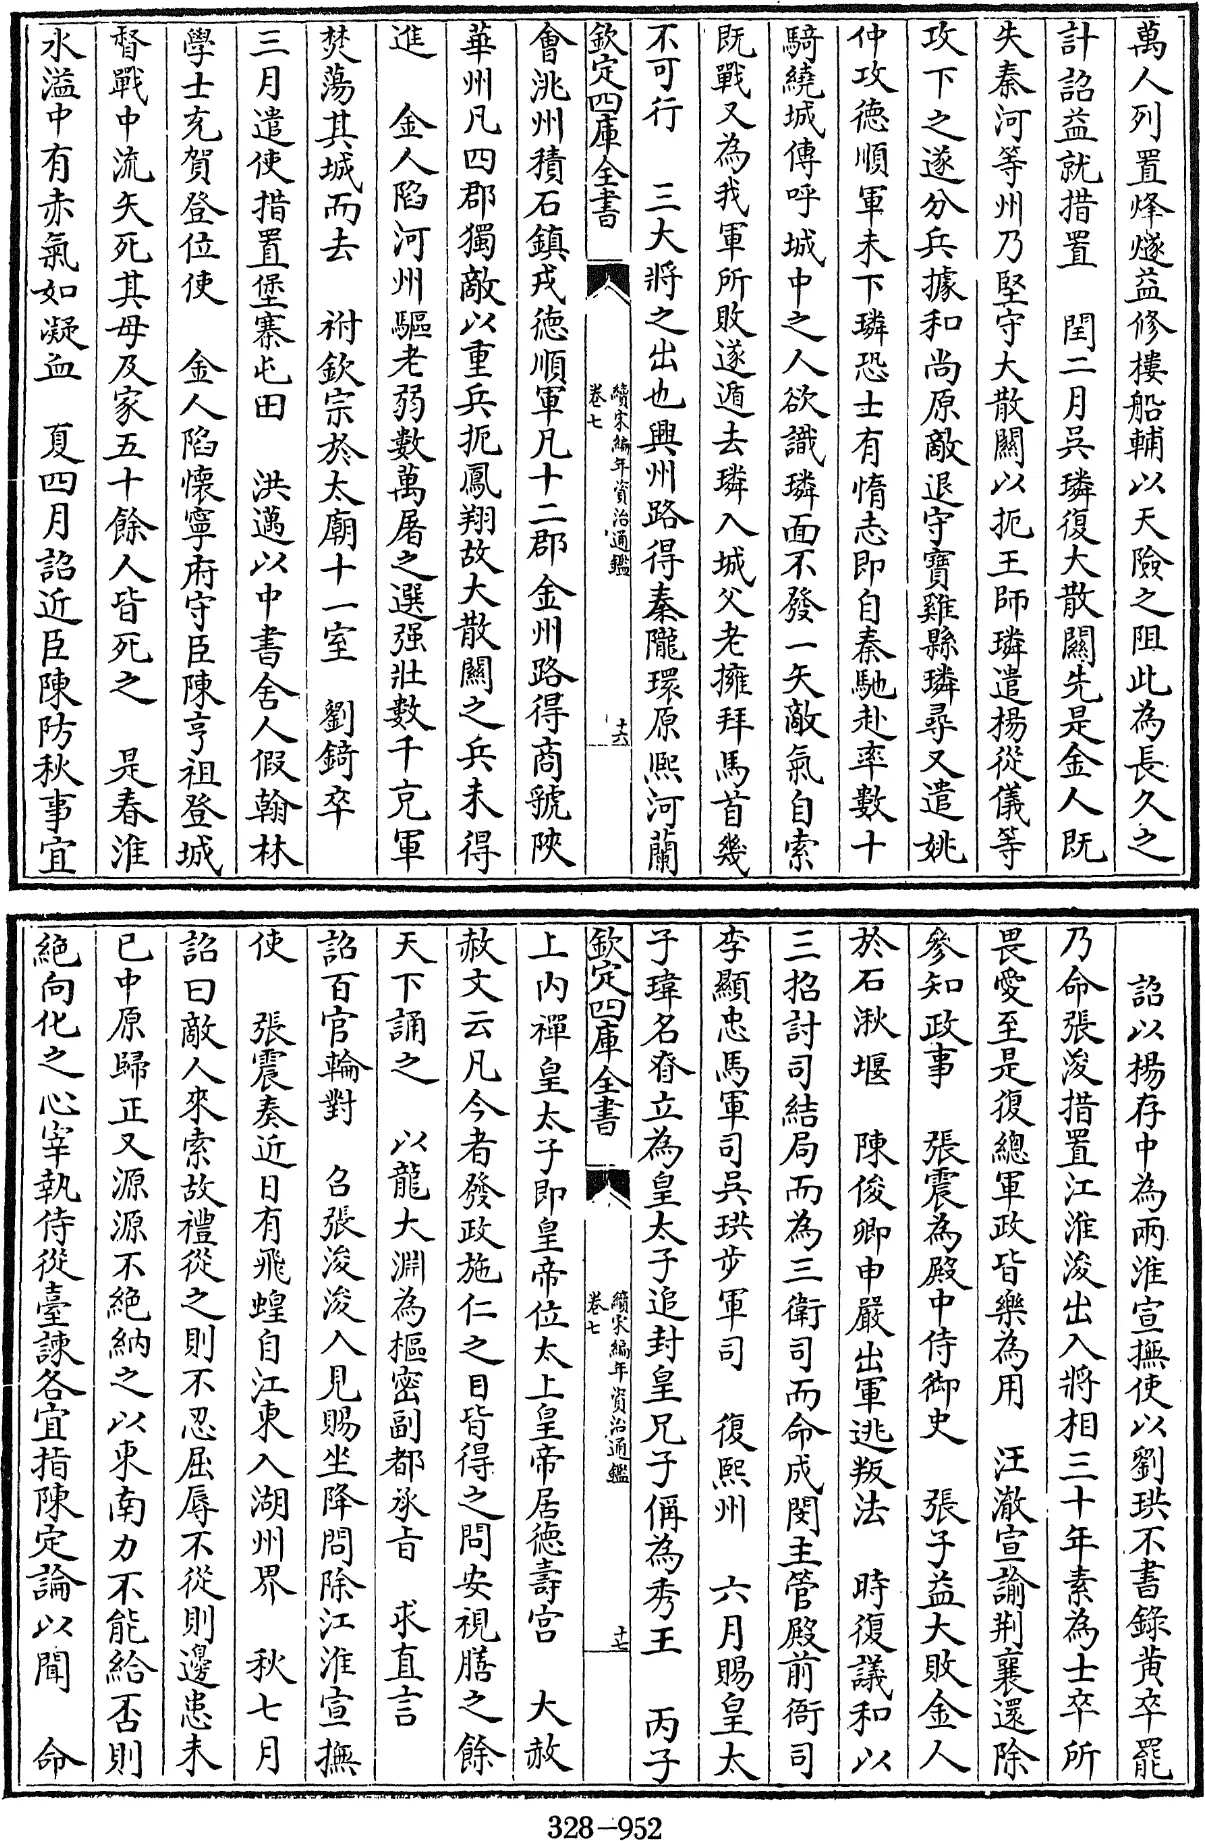 萬人列置烽燧益修樓船輔以天險之阻此為長久之
計詔益就措置　閏二月吳璘復大散關先是金人既
失秦河等州乃堅守大散關以扼王師璘遣楊從儀等
攻下之遂分兵據和尚原敵退守寶雞縣璘尋又遣姚
仲攻德順軍未下璘恐士有惰志即自秦馳赴率數十
騎繞城傳呼城中之人欲識璘面不發一矢敵氣自索
既戰又為我軍所敗遂遁去璘入城父老擁拜馬首幾
不可行　三大將之出也興州路得秦隴環原熙河蘭
欽定四庫全書
續宋編年資治通鑑
卷七
十六
會洮州積石鎮戎德順軍凡十二郡金州路得商虢陝
華州凡四郡獨敵以重兵扼鳳翔故大散關之兵未得
進　金人陷河州驅老弱數萬屠之選强壯數千充軍
焚蕩其城而去　祔欽宗於太廟十一室　劉錡卒
三月遣使措置堡寨屯田　洪邁以中書舍人假翰林
學士充賀登位使　金人陷懷寧府守臣陳亨祖登城
督戰中流矢死其母及家五十餘人皆死之　是春淮
水溢中有赤氣如凝血　夏四月詔近臣陳防秋事宜
詔以楊存中為兩淮宣撫使以劉珙不書錄黄卒罷
乃命張浚措置江淮浚出入將相三十年素為士卒所
畏愛至是復總軍政皆樂為用　汪澈宣諭荆襄還除
參知政事　張震為殿中侍御史　張子益大敗金人
於石湫堰　陳俊卿申嚴出軍逃叛法　時復議和以
三招討司結局而為三衛司而命成閔主管殿前衙司
李顯忠馬軍司吳珙步軍司　復熙州　六月賜皇太
子瑋名㫺立為皇太子追封皇兄子偁為秀王　丙子
欽定四庫全書
續宋編年資治通鑑
卷七
十七
上内禪皇太子即皇帝位太上皇帝居德壽宫　大赦
赦文云凡今者發政施仁之目皆得之問安視膳之餘
天下誦之　以龍大淵為樞密副都承旨　求直言
詔百官輪對　召張浚浚入見賜坐降問除江淮宣撫
使　張震奏近日有飛蝗自江東入湖州界　秋七月
詔曰敵人來索故禮從之則不忍屈辱不從則邊患未
已中原歸正又源源不絶納之以東南力不能給否則
絶向化之心宰執侍從臺諫各宜指陳定論以聞　命
328-952